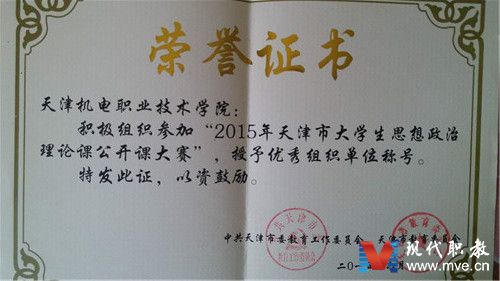 荣誉证书
天津机电职业技术学院：
积极组织参加“2015年天津市大学生思想政治
理论课公开课大赛”，授予优秀组织单位称号。
特发此证，以资鼓励。
中共天津市委教育工作委员会 天津市教育委员会
二〇一
月
现代职教
www.mve.cn